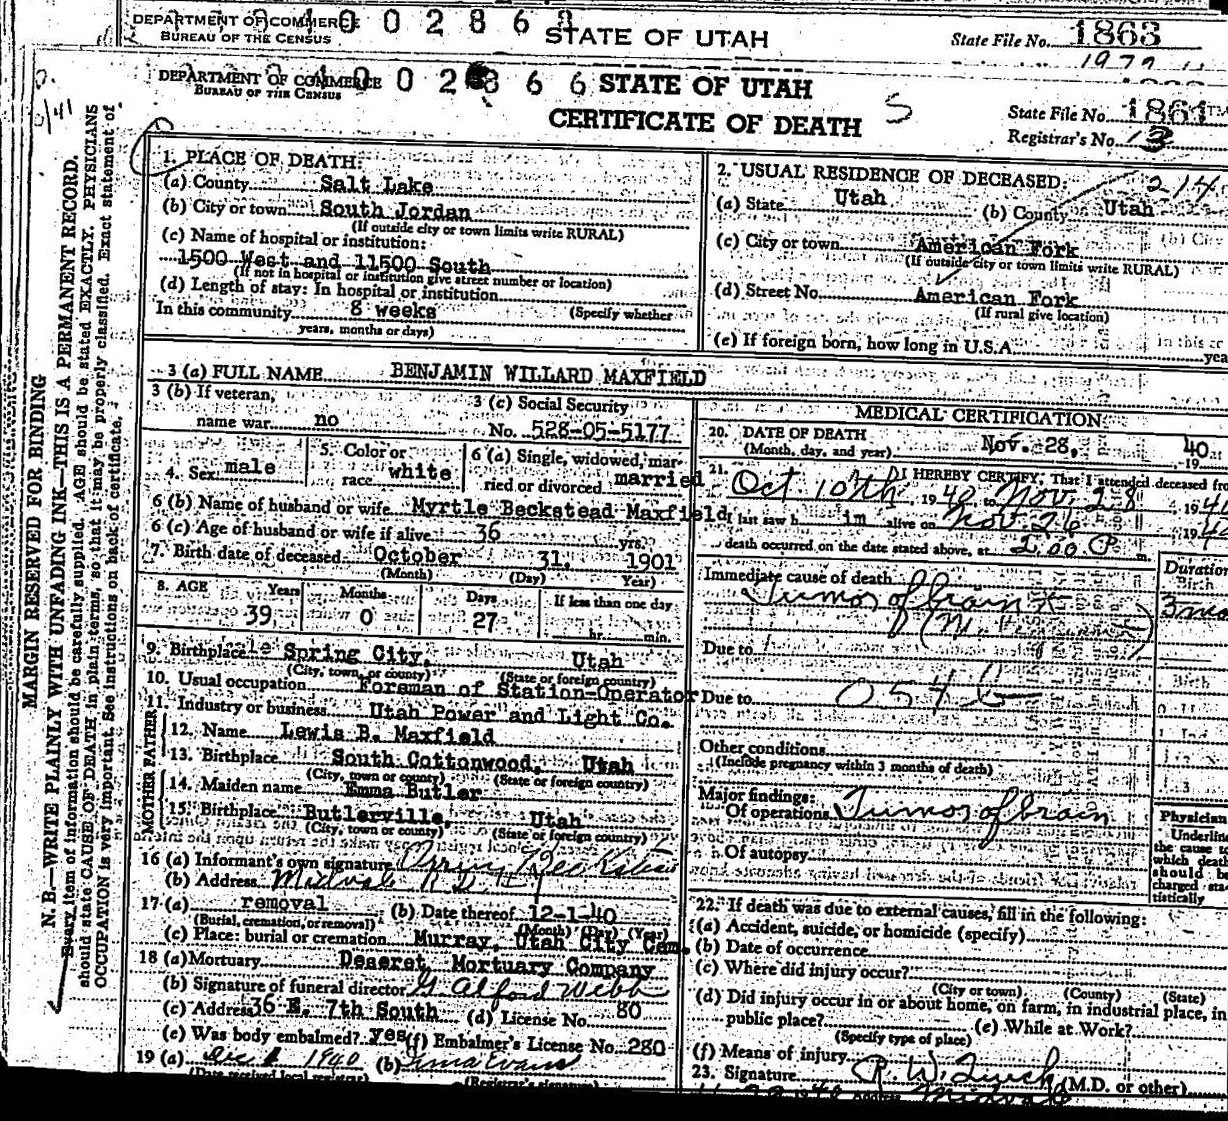 DEPARTMENT OF COMMERCE
BUREAU OF THE CENSUS
STATE OF UTAH
State File No. 1863
DEPARTMENT OF COMMERCE
BUREAU OF THE CENSUS
STATE OF UTAH
CERTIFICATE OF DEATH
S
State File No. 1864
Registrar's No. 13
MARGIN RESERVED FOR BINDING
N. B.—WRITE PLAINLY WITH UNFADING INK—THIS IS A PERMANENT RECORD.
Every item of information should be carefully supplied. AGE should be stated EXACTLY. PHYSICIANS
should state CAUSE OF DEATH in plain terms, so that it may be properly classified. Exact statement of
OCCUPATION is very important. See instructions on back of certificate.
1. PLACE OF DEATH:
(a) County Salt Lake
(b) City or town South Jordan
(If outside city or town limits write RURAL)
(c) Name of hospital or institution:
1500 West and 11500 South
(If not in hospital or institution give street number or location)
(d) Length of stay: In hospital or institution
In this community 8 weeks (Specify whether
years, months or days)
2. USUAL RESIDENCE OF DECEASED:
(a) State Utah (b) County Utah
(c) City or town American Fork
(If outside city or town limits write RURAL)
(d) Street No. American Fork
(If rural give location)
(e) If foreign born, how long in U.S.A.
3 (a) FULL NAME BENJAMIN WILLARD MAXFIELD
3 (b) If veteran,
name war no
3 (c) Social Security
No. 528-05-5177
4. Sex male
5. Color or
race white
6 (a) Single, widowed, mar-
ried or divorced married
6 (b) Name of husband or wife Myrtle Beckstead Maxfield
6 (c) Age of husband or wife if alive 36 yrs.
7. Birth date of deceased October 31, 1901
(Month) (Day) Year)
8. AGE Years Months Days If less than one day
39 0 27 hr. min.
9. Birthplace Spring City, Utah
(City, town, or county) (State or foreign country)
10. Usual occupation Foreman of Station-Operator
11. Industry or business Utah Power and Light Co.
FATHER
12. Name Lewis B. Maxfield
13. Birthplace South Cottonwood, Utah
(City, town or county) (State or foreign country)
MOTHER
14. Maiden name Emma Butler
15. Birthplace Butlerville, Utah
(City, town or county) (State or foreign country)
16 (a) Informant's own signature
(b) Address Midvale R.D.
17 (a) removal (b) Date thereof 12-1-40
(Burial, cremation, or removal) (Month) (Day) (Year)
(c) Place: burial or cremation Murray, Utah City Cem.
18 (a) Mortuary Deseret Mortuary Company
(b) Signature of funeral director G. Alford Webb
(c) Address 36 E. 7th South (d) License No. 80
(e) Was body embalmed? yes (f) Embalmer's License No. 280
19 (a) Dec 1 1940 (b) Irma Evans
(Date received local registrar) (Registrar's signature)
MEDICAL CERTIFICATION
20. DATE OF DEATH Nov. 28, 1940
(Month, day, and year)
21. I HEREBY CERTIFY, That I attended deceased from
Oct 10th 1940 to Nov 28, 194
I last saw him alive on Nov 26, 194
death occurred on the date stated above, at 2:00 P m.
Immediate cause of death
Tumor of brain
Duration
3 mo
Due to
Due to 054
Other conditions
(Include pregnancy within 3 months of death)
Major findings:
Of operations Tumor of brain
Of autopsy
Physician
Underline
the cause to
which death
should be
charged sta-
tistically
22. If death was due to external causes, fill in the following:
(a) Accident, suicide, or homicide (specify)
(b) Date of occurrence
(c) Where did injury occur?
(City or town) (County) (State)
(d) Did injury occur in or about home, on farm, in industrial place, in
public place? (e) While at Work?
(Specify type of place)
(f) Means of injury
23. Signature (M.D. or other)